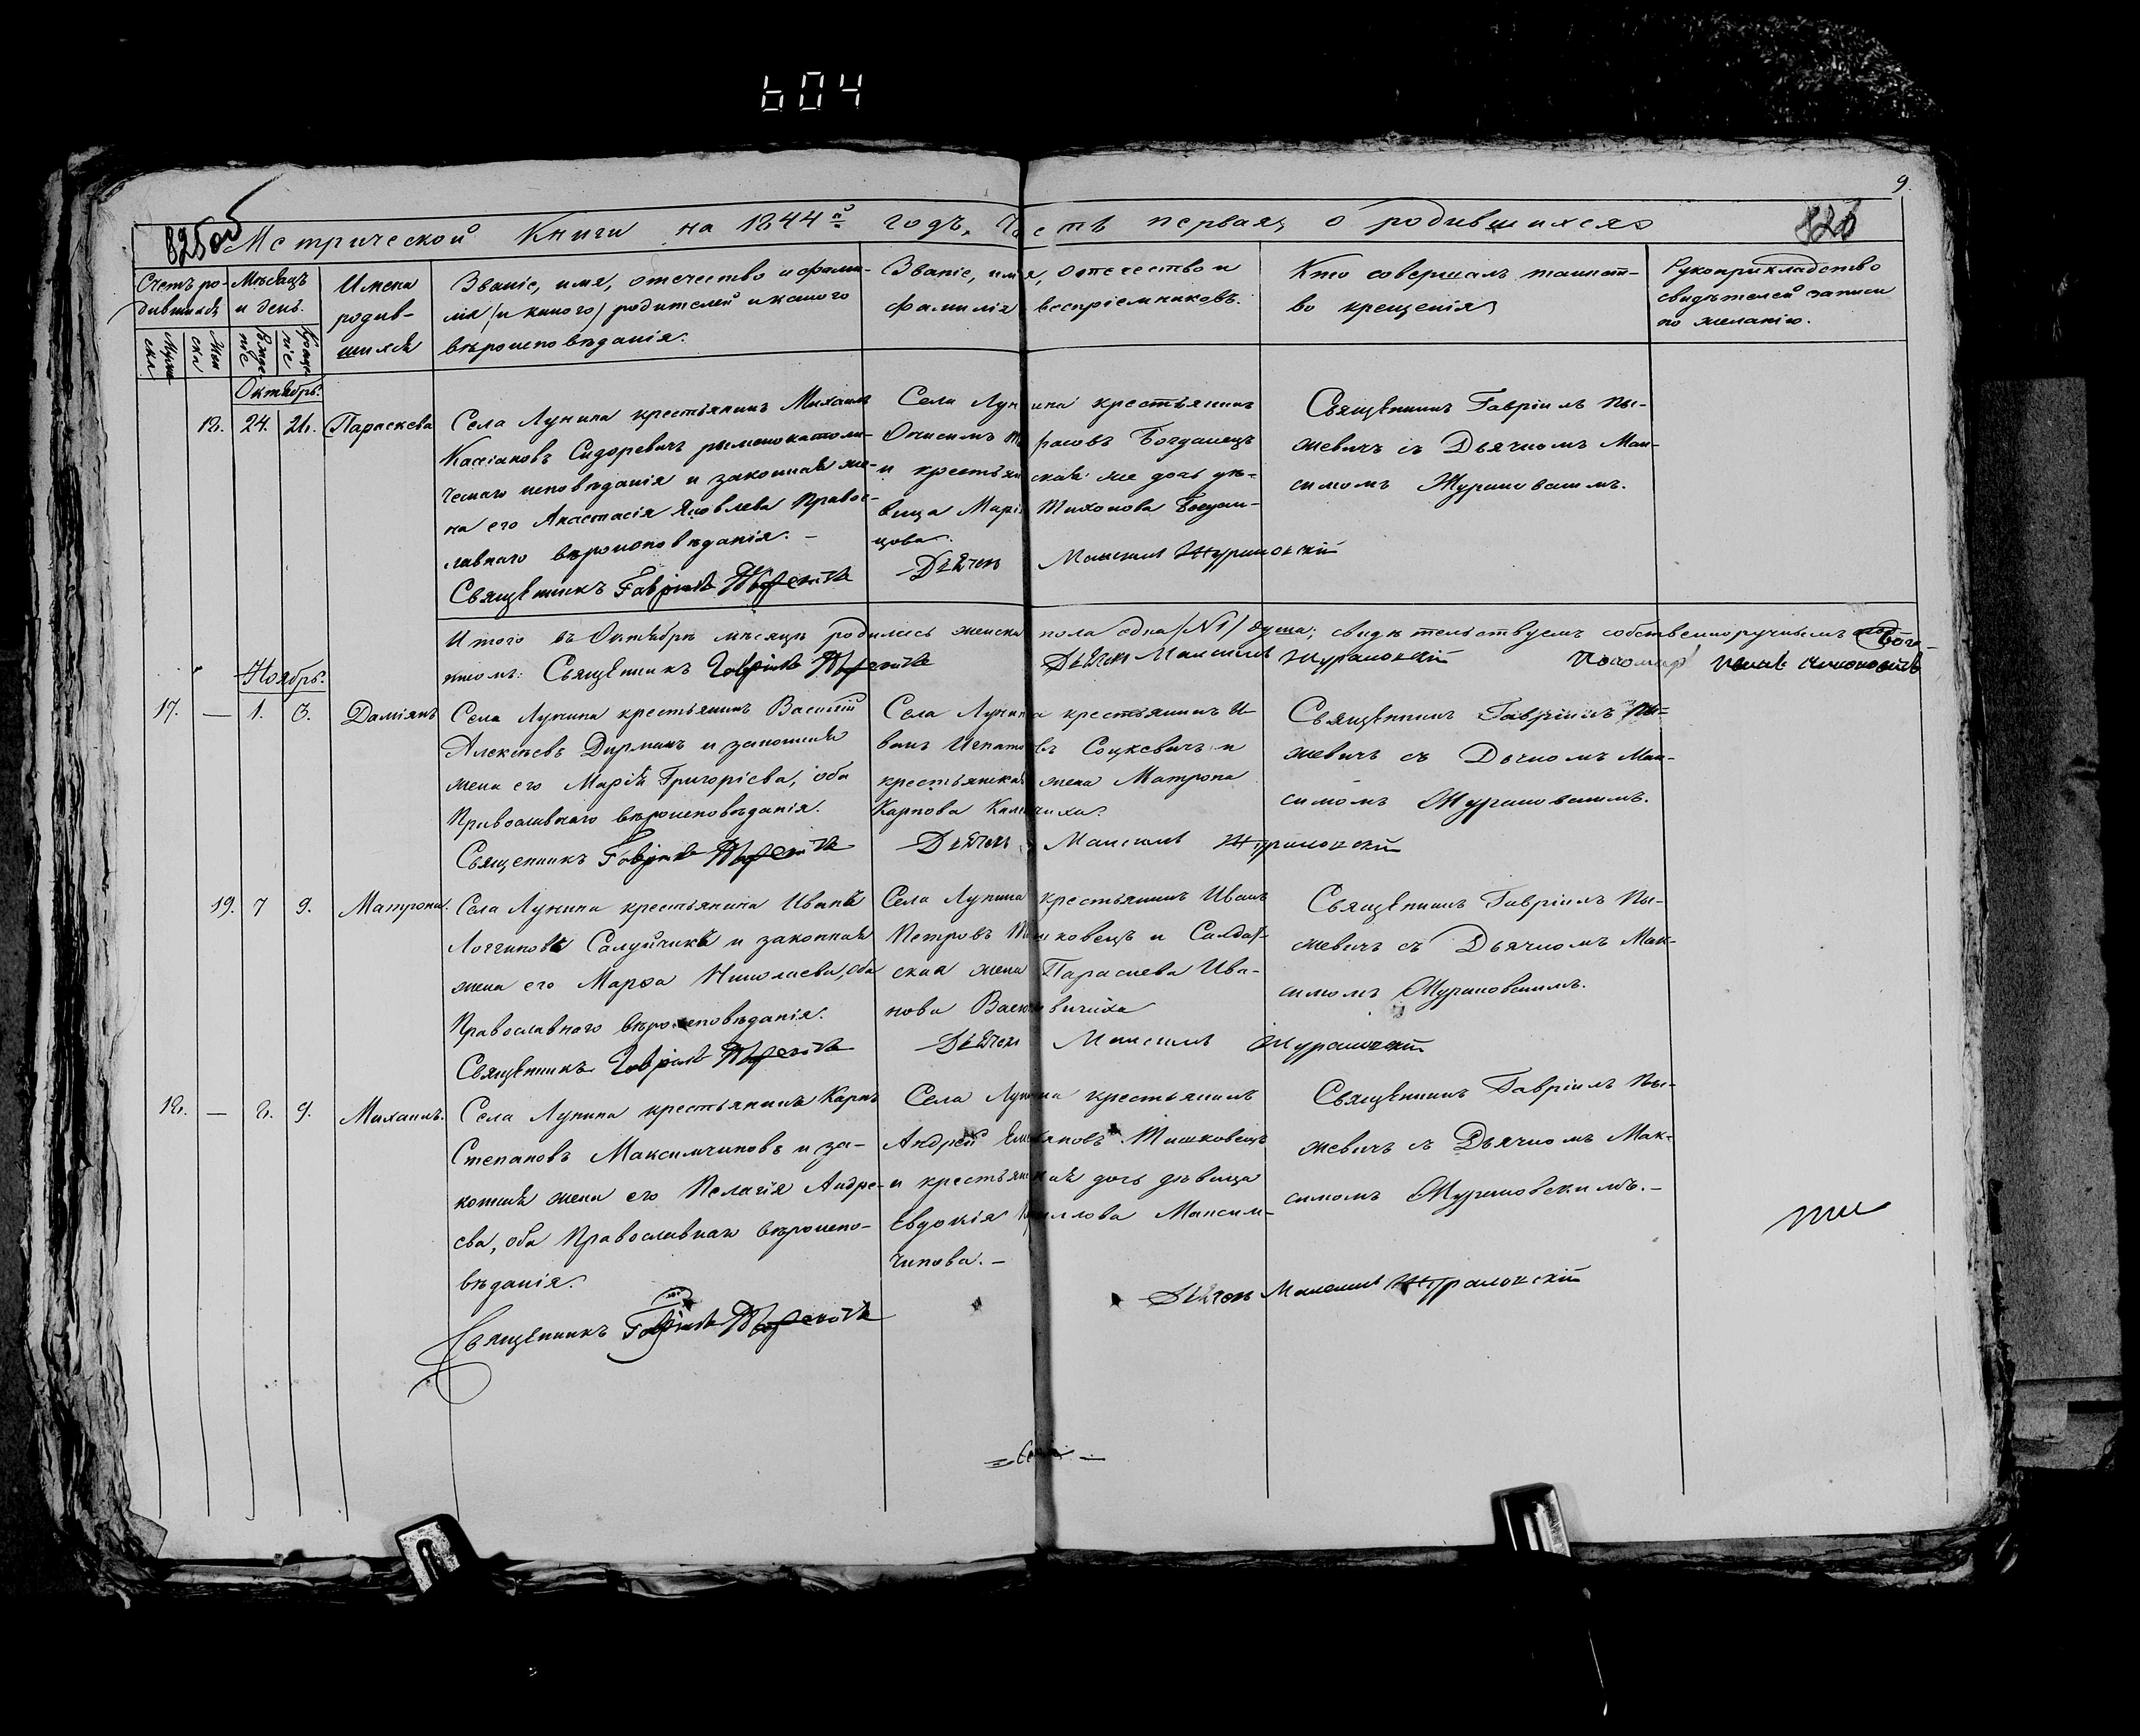 604
9.
825об
826
Метрической Книги на 1844й годъ, Часть первая, о родившихся
Счетъ ро-
дившихся
Мѣсяцъ
и день.
Имена
родив-
шихся
Званіе, имя, отечество и фами-
лія (и какого) родителей и какого
вѣроисповѣданія.
Званіе, имя, отечество и
фамилія воспріемниковъ.
Кто совершалъ таинст-
во крещенія
Рукоприкладство
свидѣтелей записи
по желанію.
Октябрь.
18. 24. 26. Параскева
Села Лунина крестьянинъ Михаилъ
Касіановъ Сидоревичъ рымскокатоли-
ческаго исповѣданія и законная же-
на его Анастасія Яковлева Правос-
лавнаго вѣроисповѣданія. -
Священникъ Гавріилъ
Села Лунина крестьянинъ
Онисимъ Тарасовъ Богданецъ
и крестьянская же дочь дѣ-
вица Марія Тихонова Богдан-
цова.
Дьячекъ Максимъ Журановскій
Священникъ Гавріилъ Пы-
жевичъ съ Дьячкомъ Мак-
симомъ Журановскимъ.
Итого въ Октябрѣ мѣсяцѣ родилась женска пола одна /№1/ душа; свидѣтельствуемъ собственноручнымъ
Священникъ Гавріилъ
Дьячекъ Максимъ Журановскій
Пономарь
Ноябрь.
17. — 1. 3. Даміянъ
Села Лунина крестьянинъ Василій
Алексѣевъ Дирманъ и законная
жена его Марія Григоріева, оба
Православнаго вѣроисповѣданія.
Священникъ Гавріилъ
Села Лунина крестьянинъ И-
ванъ Игнатовъ Соцкевичъ и
крестьянская жена Матрона
Карпова
Дьячекъ Максимъ Журановскій
Священникъ Гавріилъ Пы-
жевичъ съ Дьячкомъ Мак-
симомъ Журановскимъ.
19. 7 9. Матрона.
Села Лунина крестьянина Ивана
Логгинова Салуйчика и законная
жена его Марѳа Николаева, оба
Православнаго вѣроисповѣданія.
Священникъ Гавріилъ
Села Лунина крестьянинъ Иванъ
Петровъ Тишковецъ и Солдат-
ская жена Параскева Ива-
нова
Дьячекъ Максимъ Журановскій
Священникъ Гавріилъ Пы-
жевичъ съ Дьячкомъ Мак-
симомъ Журановскимъ.
18. — 8. 9. Михаилъ.
Села Лунина крестьянинъ Карпъ
Степановъ Максимчиковъ и за-
конная жена его Пелагія Андре-
ева, оба Православнаго вѣроиспо-
вѣданія.
Священникъ Гавріилъ
Села Лунина крестьянинъ
Андрей Емельяновъ Тишковецъ
и крестьянская дочь дѣвица
Евдокія Кириллова Максим-
чикова. -
Дьячекъ Максимъ Журановскій
Священникъ Гавріилъ Пы-
жевичъ съ Дьячкомъ Мак-
симомъ Журановскимъ. -